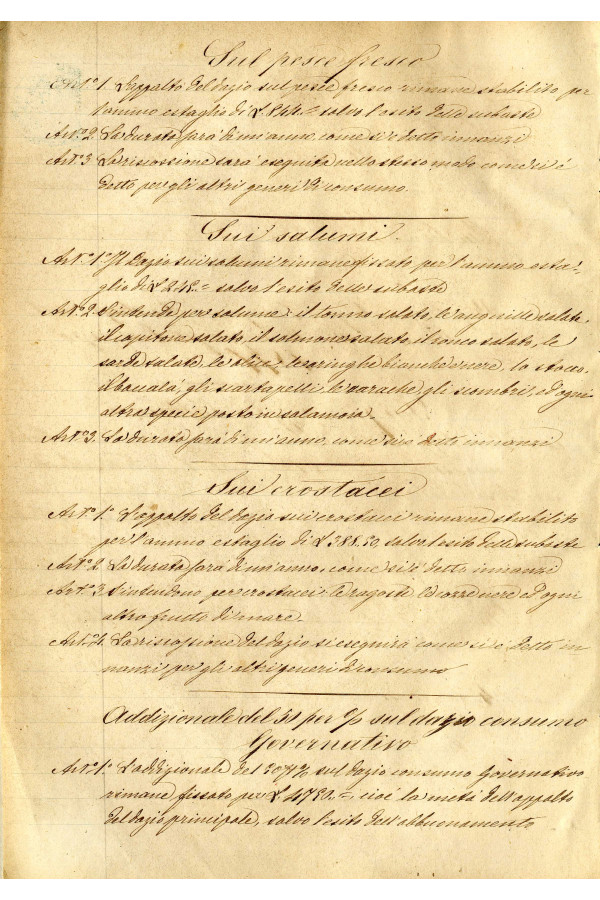 Sul pesce fresco
Art.° 1. L'appalto del dazio sul pesce fresco rimane stabilito per
l'annuo estaglio di £ 844.= salvo l'esito delle subaste
Art.° 2 La durata sarà di un'anno come si è detto innanzi
Art.° 3 La riscossione sarà eseguita nello stesso modo come si è
detto per gli altri generi di consumo.
Sui salumi.
Art.° 1.° Il dazio sui salumi rimane fissato per l'annuo esta-
glio di £ 242.= salvo l'esito delle subaste
Art.° 2. S'intende per salume: il tonno salato, le anguille salate,
il capitone salato, il salmone salato, il ronco salato, le
sarde salate, le alici, le aringhe bianche o nere, lo stocco,
il baccalà, gli scartapelli, le varache, gli scombri, ed ogni
altra specie posta in salamoia.
Art.° 3. La durata sarà di un'anno, come si è detto innanzi
Sui crostacei
Art.° 1.° L'appalto del dazio sui crostacei rimane stabilito
per l'annuo estaglio di £ 388.50, salvo l'esito delle subaste
Art.° 2 La durata sarà di un'anno, come si è detto innanzi
Art.° 3 S'intendono per crostacei: le ragoste le cozze nere ed ogni
altro frutto di mare.
Art. 4. La riscossione del dazio si eseguirà come si è detto in
nanzi per gli altri generi di consumo
Addizionale del 50 per % sul dazio consumo
Governativo
Art.° 1.° L'addizionale del 50 % sul dazio consumo Governativo
rimane fissato per £ 4752.=, cioè la metà dell'appalto
del dazio principale, salvo l'esito dell'abbuonamento